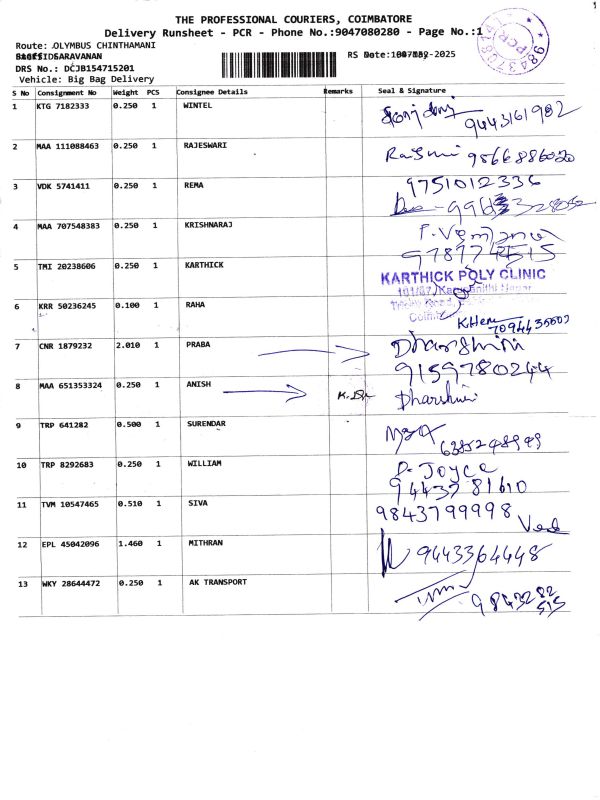 1
THE PROFESSIONAL COURIERS, COIMBATORE
Delivery Runsheet - PCR - Phone No.:9047080280 - Page No.:1
Route: OLYMBUS CHINTHAMANI
SARAVANAN
DRS No.: DCJB154715201
Vehicle: Big Bag Delivery
PCR
S No Consignment No Weight PCS Consignee Details Remarks Seal & Signature
1 KTG 7182333 0.250 1 WINTEL 9443161982
2 MAA 111088463 0.250 1 RAJESWARI 9566886020
3 VDK 5741411 0.250 1 REMA 9751012336
4 MAA 707548383 0.250 1 KRISHNARAJ
5 TMI 20238606 0.250 1 KARTHICK KARTHICK POLY CLINIC
6 KRR 50236245 0.100 1 RAHA
7 CNR 1879232 2.010 1 PRABA Dharshini
9159780244
8 MAA 651353324 0.250 1 ANISH Dharshini
9 TRP 641282 0.500 1 SURENDAR
10 TRP 8292683 0.250 1 WILLIAM P. JOYCE
11 TVM 10547465 0.510 1 SIVA 9843799998
12 EPL 45042096 1.460 1 MITHRAN 9443364448
13 WKY 28644472 0.250 1 AK TRANSPORT